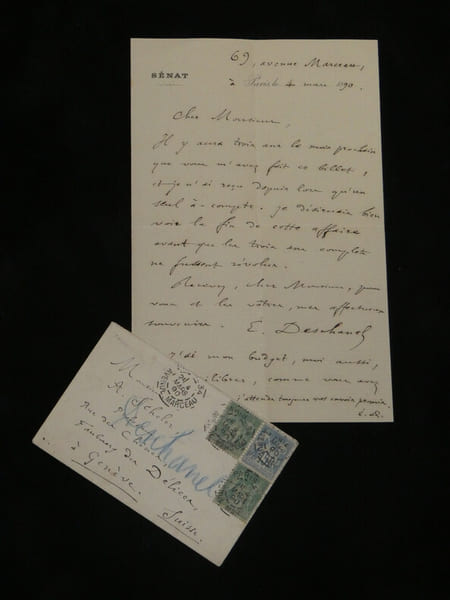 69, avenue Marceau,
SÉNAT
à Paris le 4 mars 1890.
Cher Monsieur,
Il y aura trois ans le mois prochain
que vous m'avez fait ce billet,
et je n'ai reçu depuis lors qu'un
seul à-compte. Je désirerais bien
voir la fin de cette affaire
avant que les trois ans complets
ne fussent révolus.
Recevez, cher Monsieur, pour
vous et les vôtres, mes affectueux
souvenirs. E. Deschanel
J'ai mon budget, moi aussi,
comme vous avez
j'attends toujours vos envois promis.
E. D.
Monsieur
A. Scholer
Rue des
Faubourg des Délices
à Genève.
Suisse.
Deschanel
AVENUE MARCEAU